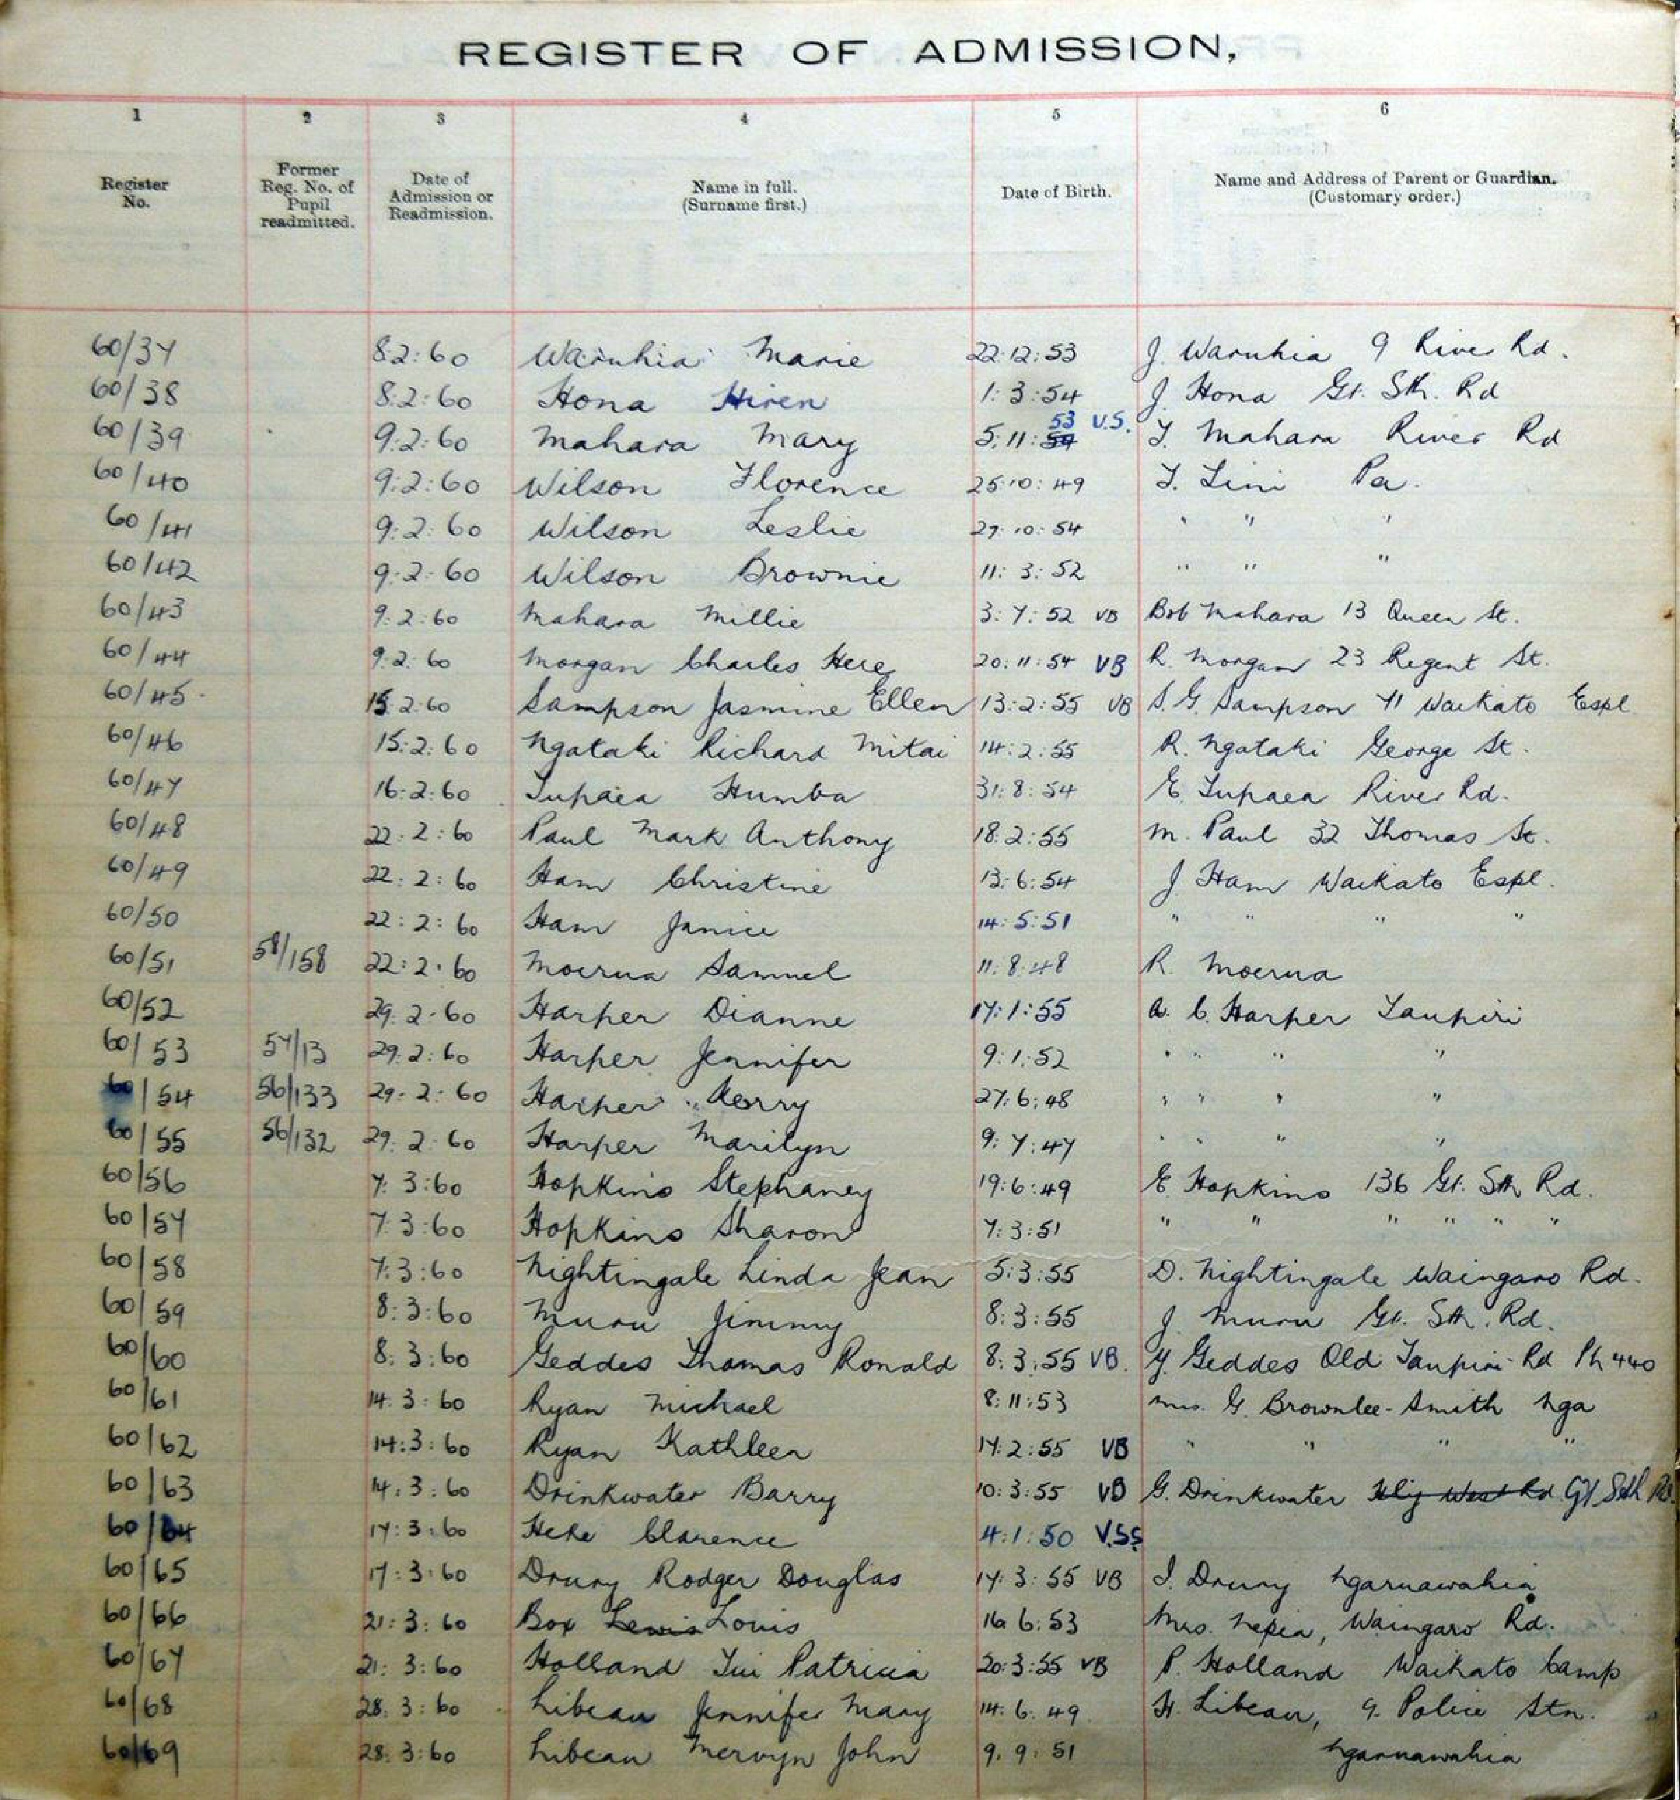 REGISTER OF ADMISSION,
1 2 3 4 5 6
Register No. Former Reg. No. of Pupil readmitted. Date of Admission or Readmission. Name in full. (Surname first.) Date of Birth. Name and Address of Parent or Guardian. (Customary order.)
60/37 8:2:60 Waruhia Marie 22:12:53 J. Waruhia 9 River Rd.
60/38 8:2:60 Hona Hiren 1:3:54 J. Hona Gt. Sth. Rd
60/39 9:2:60 Mahara Mary 5:11:54 53 V.S. T. Mahara River Rd
60/40 9:2:60 Wilson Florence 25:10:49 T. Pa.
60/41 9:2:60 Wilson Leslie 27:10:54 " " "
60/42 9:2:60 Wilson Brownie 11:3:52 " " "
60/43 9:2:60 Mahara Millie 3:7:52 VB Bob Mahara 13 Queen St.
60/44 9:2:60 Morgan Charles Here 20:11:54 VB R. Morgan 23 Regent St.
60/45 15:2:60 Sampson Jasmine Ellen 13:2:55 VB S.G. Sampson 71 Waikato Espl
60/46 15:2:60 Ngataki Richard Mitai 14:2:55 R. Ngataki George St.
60/47 16:2:60 Tupaea Humba 31:8:54 E. Tupaea River Rd.
60/48 22:2:60 Paul Mark Anthony 18:2:55 M. Paul 32 Thomas St.
60/49 22:2:60 Ham Christine 13:6:54 J Ham Waikato Espl.
60/50 22:2:60 Ham Janice 14:5:51 " " " "
60/51 58/158 22:2:60 Moerua Samuel 11:8:48 R. Moerua
60/52 29:2:60 Harper Dianne 17:1:55 A. C. Harper Taupiri
60/53 57/13 29:2:60 Harper Jennifer 9:1:52 " " " "
60/54 56/133 29:2:60 Harper Kerry 27:6:48 " " " "
60/55 56/132 29:2:60 Harper Marilyn 9:7:47 " " " "
60/56 7:3:60 Hopkins Stephaney 19:6:49 E Hopkins 136 Gt. Sth Rd.
60/57 7:3:60 Hopkins Sharon 7:3:51 " " " " " "
60/58 7:3:60 Nightingale Linda Jean 5:3:55 D. Nightingale Waingaro Rd.
60/59 8:3:60 Muru Jimmy 8:3:55 J. Muru Gt. Sth. Rd.
60/60 8:3:60 Geddes Thomas Ronald 8:3:55 VB. Y. Geddes Old Taupiri Rd Ph 440
60/61 14:3:60 Ryan Michael 8:11:53 Mrs. G. Brownlee-Smith Nga
60/62 14:3:60 Ryan Kathleen 17:2:55 VB " " " "
60/63 14:3:60 Drinkwater Barry 10:3:55 VB G. Drinkwater West Rd Gt Sth Rd
60/64 17:3:60 Heke Clarence 4:1:50 V.S.S
60/65 17:3:60 Drury Rodger Douglas 17:3:55 VB I. Drury Ngaruawahia
60/66 21:3:60 Box Lewis Louis 16:6:53 Mrs. Nepia, Waingaro Rd.
60/67 21:3:60 Holland Tui Patricia 20:3:55 VB P. Holland Waikato Camp
60/68 28:3:60 Libeau Jennifer Mary 14:6:49 H. Libeau, 9. Police Stn.
60/69 28:3:60 Libeau Mervyn John 9:9:51 Ngaruawahia